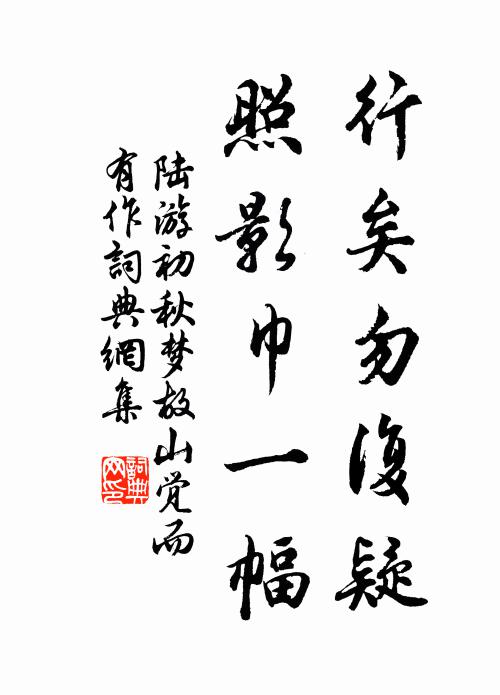 行矣勿復疑
照影巾一幅
陆游初秋梦故山觉而
有作詞典網集
詞典
网印